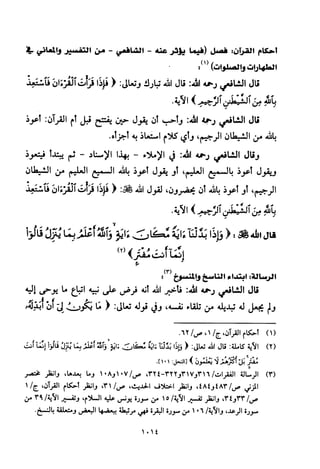 أحكام القرآن: فصل (فيما يؤثر عنه - الشافعي - من التفسير والمعاني في
الطهارات والصلوات) (١):
قال الشافعي رحمه الله: قال الله تبارك وتعالى: ﴿ فَإِذَا قَرَأْتَ الْقُرْآنَ فَاسْتَعِذْ
بِاللَّهِ مِنَ الشَّيْطَانِ الرَّجِيمِ ﴾ الآية.
قال الشافعي رحمه الله: وأحب أن يقول حين يفتتح قبل أم القرآن: أعوذ
بالله من الشيطان الرجيم، وأي كلام استعاذ به أجزأه.
وقال الشافعي رحمه الله: في - الإملاء - بهذا الإسناد - ثم يبتدأ فيتعوذ
ويقول: أعوذ بالسميع العليم، أو يقول أعوذ بالله السميع العليم من الشيطان
الرجيم، أو أعوذ بالله أن يحضرون، لقول الله: ﴿ فَإِذَا قَرَأْتَ الْقُرْآنَ فَاسْتَعِذْ
بِاللَّهِ مِنَ الشَّيْطَانِ الرَّجِيمِ ﴾ الآية.
قال الله: ﴿ وَإِذَا بَدَّلْنَا آيَةً مَكَانَ آيَةٍ وَاللَّهُ أَعْلَمُ بِمَا يُنَزِّلُ قَالُوا
إِنَّمَا أَنْتَ مُفْتَرٍ ﴾ (٢)
الرسالة: ابتداء الناسخ والمنسوخ (٣):
قال الشافعي رحمه الله: فأخبر الله أنه فرض على نبيه اتباع ما يوحى إليه
ولم يجعل له تبديله من تلقاء نفسه، وفي قوله تعالى: ﴿ مَا يَكُونُ لِي أَنْ أُبَدِّلَهُ
(١) أحكام القرآن، ج/ ١، ص/ ٦٢.
(٢) الآية كاملة: قال الله تعالى: ﴿ وَإِذَا بَدَّلْنَا آيَةً مَكَانَ آيَةٍ وَاللَّهُ أَعْلَمُ بِمَا يُنَزِّلُ قَالُوا إِنَّمَا أَنْتَ
مُفْتَرٍ بَلْ أَكْثَرُهُمْ لَا يَعْلَمُونَ ﴾ [النحل: ١٠١].
(٣) الرسالة الفقرات/ ٣١٦ و٣١٧ و٣٢٢-٣٢٤، ص/ ١٠٧ و١٠٨ وما بعدها، وانظر مختصر
المزني ص/ ٤٨٣ و٤٨٤، وانظر اختلاف الحديث، ص/ ٣١، وانظر أحكام القرآن، ج/ ١
ص/ ٣٣ و٣٤، وانظر تفسير الآية/ ١٥ من سورة يونس عليه السلام، وتفسير الآية/ ٣٩ من
سورة الرعد، والآية/ ١٠٦ من سورة البقرة فهي مرتبطة ببعضها البعض ومتعلقة بالنسخ.
١٠١٤